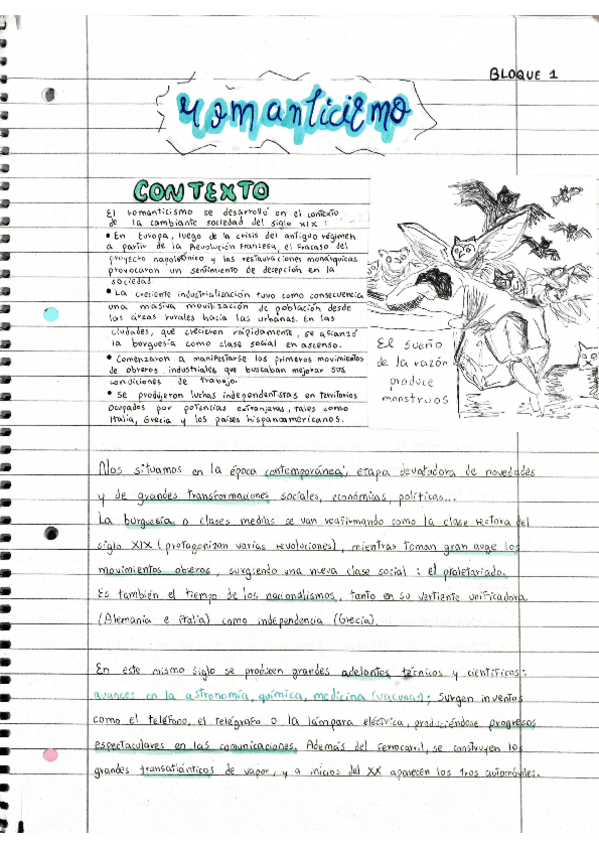 BLOQUE 1
romanticismo
CONTEXTO
El romanticismo se desarrolló en el contexto
de la cambiante sociedad del siglo XIX:
• En Europa, luego de la crisis del antiguo régimen
a partir de la Revolución Francesa, el fracaso del
proyecto napoleónico y las restauraciones monárquicas
provocaron un sentimiento de decepción en la
sociedad
• La creciente industrialización tuvo como consecuencia
una masiva movilización de población desde
las áreas rurales hacia las urbanas. En las
ciudades, que crecieron rápidamente, se afianzó
la burguesía como clase social en ascenso.
• Comenzaron a manifestarse los primeros movimientos
de obreros industriales que buscaban mejorar sus
condiciones de trabajo.
• Se produjeron luchas independentistas en territorios
ocupados por potencias extranjeras, tales como
Italia, Grecia y los países hispanoamericanos.
El sueño
de la razón
produce
monstruos
Nos situamos en la época contemporánea, etapa devoradora de novedades
y de grandes transformaciones sociales, económias, políticas...
La burguesía o clases medias se van reafirmando como la clase rectora del
siglo XIX (protagonizan varias revoluciones), mientras toman gran auge los
movimientos obreros, surgiendo una nueva clase social: el proletariado.
Es también el tiempo de los nacionalismos, tanto en su vertiente unificadora
(Alemania e italia) como independencia (Grecia).
En este mismo siglo se producen grandes adelantos técnicos y científicos:
avances en la astronomía, química, medicina (vacunas); surgen inventos
como el teléfono, el telégrafo o la lámpara eléctrica, produciéndose progresos
espectaculares en las comunicaciones. Además del ferrocarril, se construyen los
grandes transatlánticos de vapor, y a inicios del XX aparecen los 1ros automóviles.